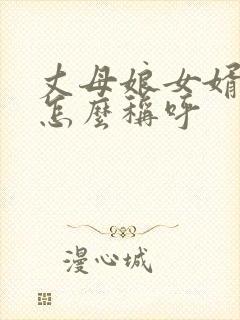 丈母娘女婿
怎麼稱呼
漫心城